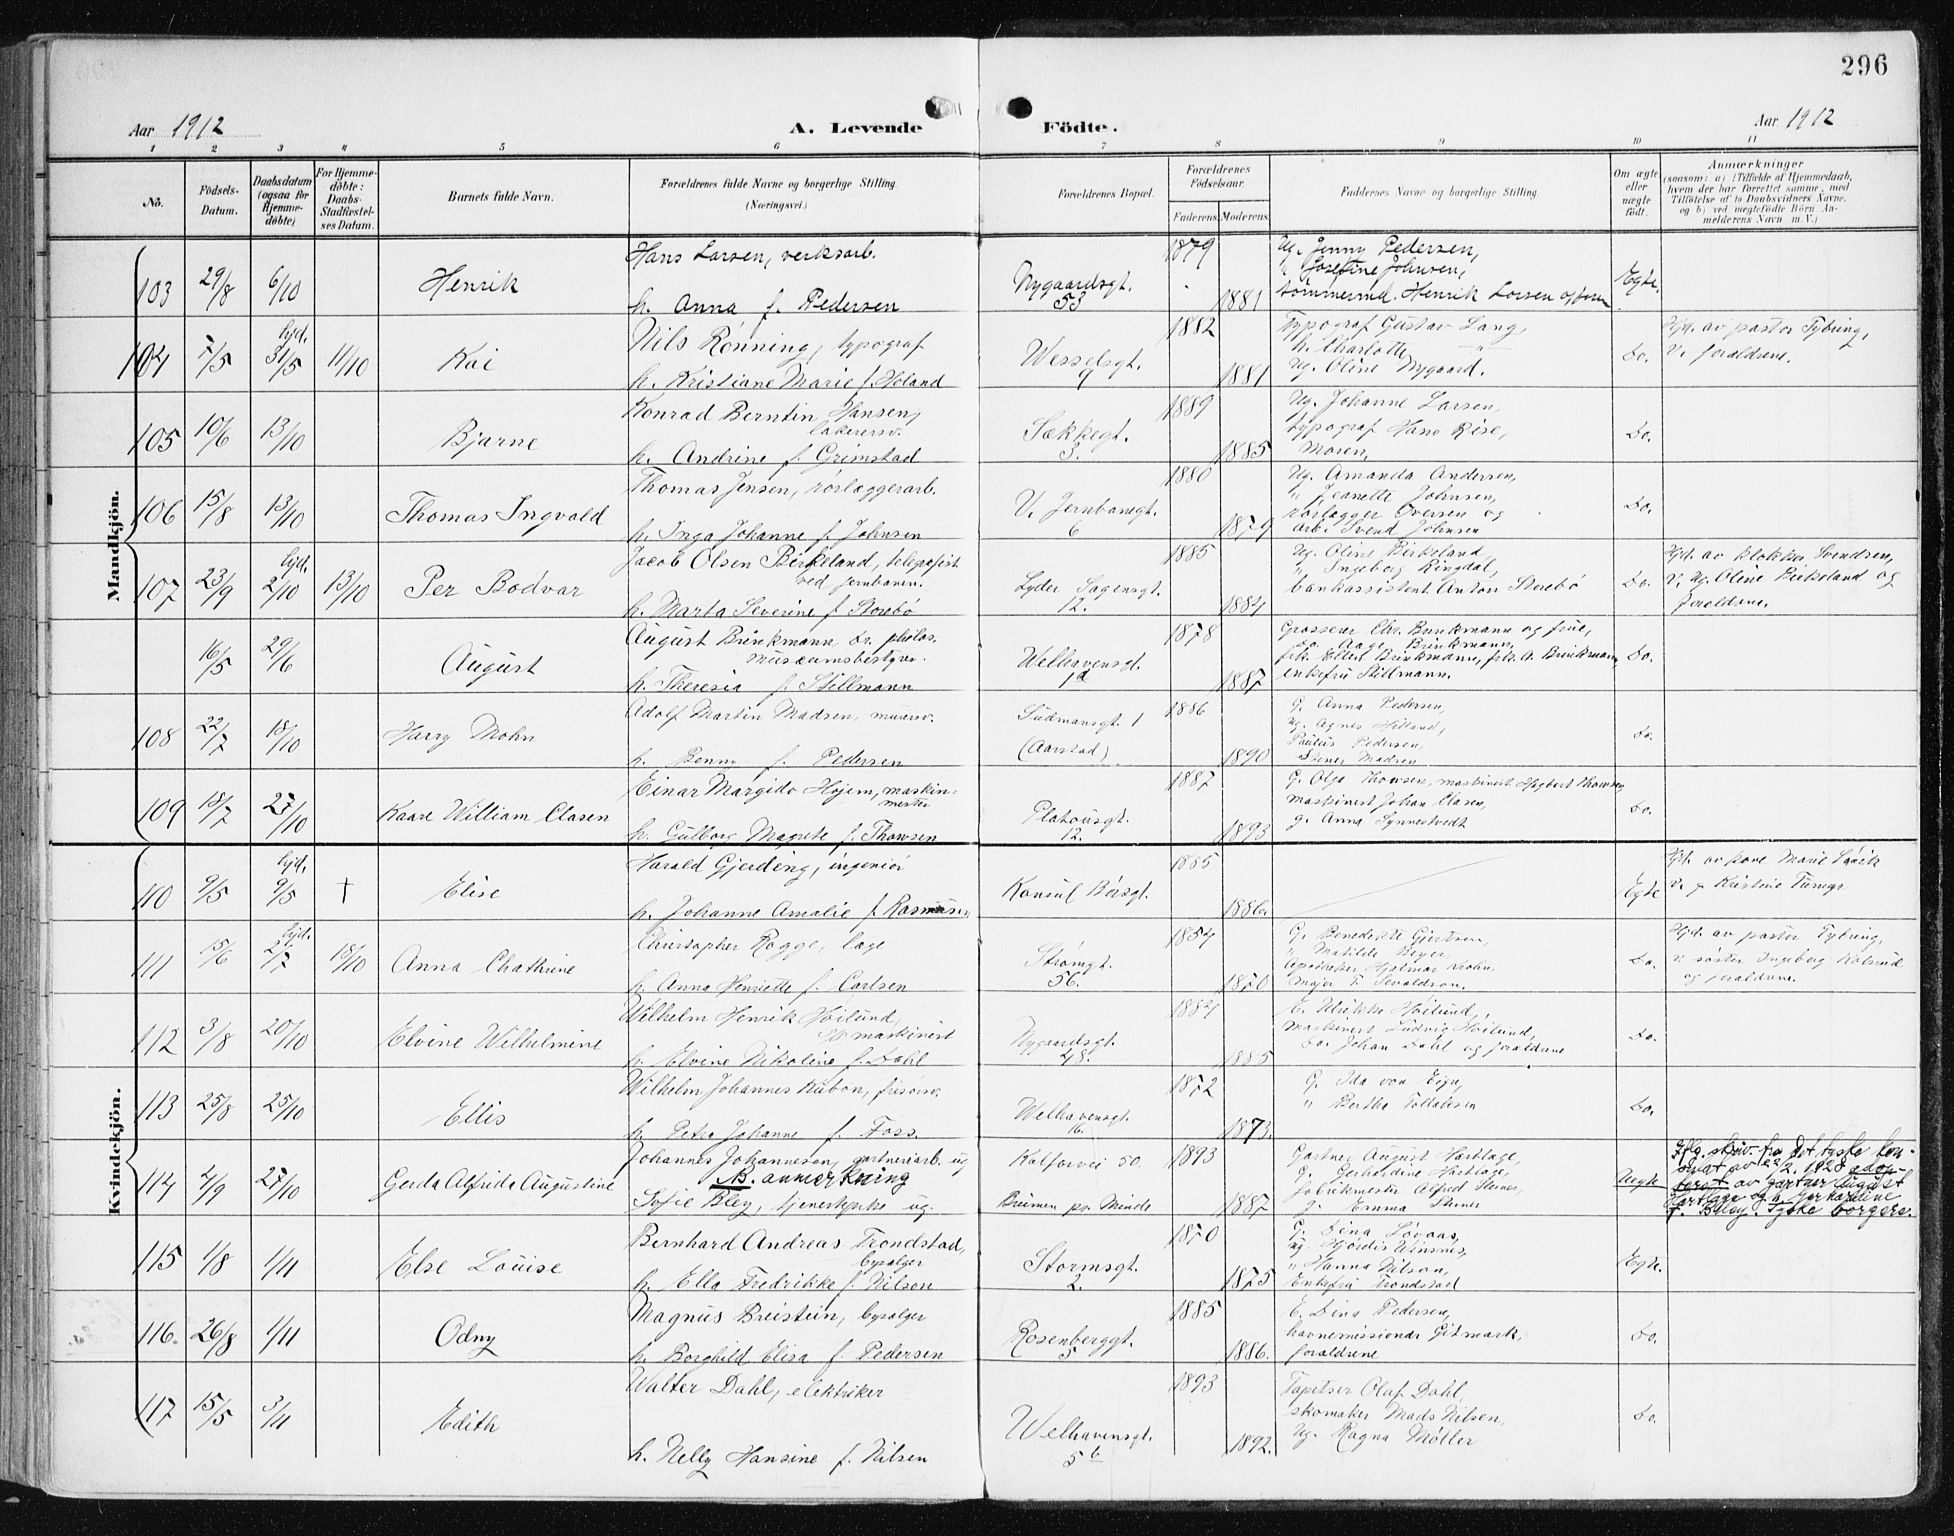 296
Aar 1912
A. Levende Födte.
Aar 1912
1 2 3 4 5 6 7 8 9 10 11
No.
Födsels-
Datum.
Daabsdatum
(ogsaa for
Hjemme-
döbte)
For Hjemme-
döbte:
Daabs-
Stadfæstel-
ses Datum.
Barnets fulde Navn.
Forældrenes fulde Navne og borgerlige Stilling.
(Næringsvei.)
Forældrenes Bopæl.
Forældrenes
Födselsaar.
Faderens. Moderens.
Faddernes Navne og borgerlige Stilling.
Om ægte
eller
uægte
født.
Anmærkninger
(saasom: a) i Tilfælde af Hjemmedaab,
hvem der har forrettet samme, med
Tilföielse af to Daabsvidners Navne,
og b) ved uægtefödte Börn An-
melderens Navn m. V.)
Mandkjön.
103 29/8 6/10 Henrik
Hans Larsen, verksarb.
h. Anna f. Pedersen
Nygaardsgt.
53
1879
1881
Ug. Jenny Pedersen,
" Josefine Johnsen,
tømmermd. Henrik Larsen og
Egte.
104 7/5 hjd. 31/5 11/10 Kai
Nils Rønning, typograf
h. Kristiane Marie f. Høland
Wesselsgt.
9
1882
1881
Typograf Gustav Lang,
h. Charlotte "
Ug. Oline Nygaard.
Do.
Hjd. av pastor Tybring,
v. forældrene.
105 10/6 13/10 Bjarne
Konrad Berntin Hansen,
lakerersv.
h. Andrine f. Grimstad
Sækkegt.
3.
1889
1885
Ug. Johanne Larsen,
typograf Hans Rise,
Moren,
Do.
106 15/8 13/10 Thomas Ingvald
Thomas Jensen, rørlæggerarb.
h. Inga Johanne f. Johnsen
V. Jernbanegt.
6
1880
1879
Ug. Amanda Andersen,
" Jeanette Johnsen,
rørlægger Iversen og
arb. Svend Johnsen
Do.
107 23/9 hjd. 2/10 13/10 Per Bodvar
Jacob Olsen Birkeland, telegrafist
ved jernbanen.
h. Marta Severine f. Storebø
Lyder Sagensgt.
12.
1885
1884
Ug. Oline Birkeland,
" Ingeborg Ringdal,
bankassistent Anton Storebø
Do.
Hjd. av klokker Svendsen,
v. Ug. Oline Birkeland og
forældrene.
16/5 29/6 August
August Brinkmann dr. philos.
museumsbestyrer.
h. Theresia f. Stillmann
Welhavensgt.
1d
1878
1887
Grosserer Chr. Brinkmann og frue,
do. Aage Brinkmann,
frk. Ellen Brinkmann, frk. A. Brinkmann,
enkefru Stillmann.
Do.
108 22/7 18/10 Harry Mohn
Adolf Martin Madsen, murersv.
h. Benny f. Pedersen
Sudmansgt. 1
(Aarstad)
1886
1890
G. Anna Pedersen,
Ug. Agnes Hilland,
Paulus Pedersen,
Madsen
do.
109 18/7 27/10 Kaare William Clasen
Einar Margido Hojem, maskin-
mester
h. Gulborg Magrete f. Thowsen
Platousgt.
12.
1887
1893
G. Olga Thowsen, maskinist Thowsen,
maskinist Johan Clasen,
g. Anna Synnestvedt
Do.
Kvindekjön.
110 9/5 hjd. 9/5 † Elise
Harald Gjerding, ingeniør
h. Johanne Amalie f. Rasmussen
Konsul Børsgt.
1885
1886.
Egte
Hjd. av kone Marie
v. g. Kristine
111 15/6 hjd. 2/7 18/10 Anna Chathrine
Christopher Rogge, læge
h. Anna Henriette f. Carlsen
Strømgt.
56.
1854
1870
G. Benedikte Gjertsen,
" Matilde Beyer,
Apotheker Hjalmar Krohn,
major F. Sevaldson.
Do.
Hjd. av pastor Tybring,
v. søster Ingeborg Kolsrud
og forældrene.
112 3/8 20/10 Elvine Wilhelmine
Wilhelm Henrik Høilund,
maskinist
h. Elvine Nikoleine f. Dahl
Nygaardsgt.
48.
1884
1885
E. Ulrikke Høilund,
Maskinist Ludvig Høilund,
do. Johan Dahl og forældrene
Do.
113 25/8 25/10 Ellis
Wilhelm Johannes Kubon, frisørsv.
h. Petra Johanne f. Foss.
Welhavensgt.
16.
1872
1873.
G. Ida von Eign,
" Bertha Tollaksen
Do.
114 2/9 27/10 Gerda Alfrida Augustine
Johannes Johannesen, gartneriarb. ug.
NB. anmerkning
Sofie Bley, tjenestepike ug.
Kalfarvei 50.
Bremen pr. Minde
1893
1887
Gartner August Hartlage,
g. Gerhardine Hartlage,
fabrikmester Alfred Steiner,
g. Emma Steiner
Uegte
Iflg. skriv. fra det tyske kon-
sulat av 22/2. 1928 adop-
teret av gartner August
Hartlage og h. Gerhardine
f. Bley. Tyske borgere.
115 1/8 1/11 Else Louise
Bernhard Andreas Trondstad,
bysælger
h. Ella Fredrikke f. Nilsen
Stormsgt.
2.
1870
1875
G. Dina Løvaas,
ug. Hjørdis Winsnes,
" Hanna Nilsen,
Enkefru Trondstad
Egte.
116. 26/8 1/11 Odny
Magnus Breistein, bysælger
h. Borghild Elisa f. Pedersen
Rosenberggt.
5
1885
1886.
E. Dina Pedersen,
havnemissionær Gitmark,
forældrene
Do.
117 15/5 3/11 Edith
Walter Dahl, elektriker
h. Nelly Hansine f. Nilsen
Welhavensgt.
5b
1893
1892.
Tapetser Olaf Dahl,
skomaker Mads Nilsen,
Ug. Ragna Møller
Do.